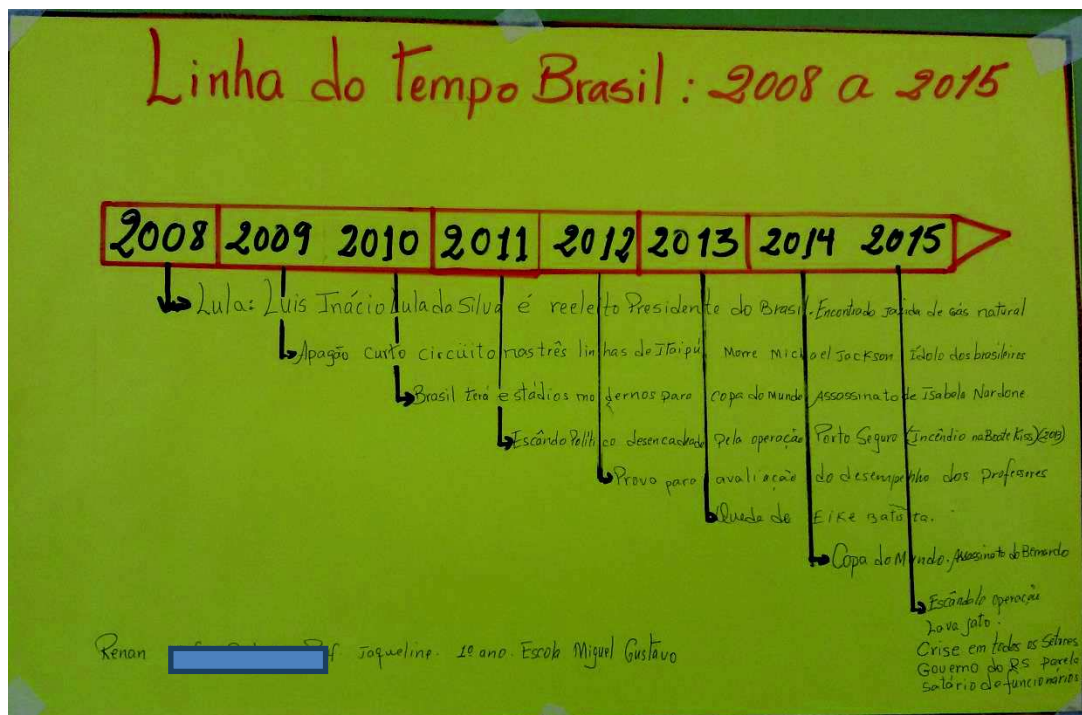 Linha do Tempo Brasil: 2008 a 2015
2008 2009 2010 2011 2012 2013 2014 2015
Lula: Luis Inácio Lula da Silva é reeleito Presidente do Brasil. Encontrado jazida de gás natural
Apagão curto circuito nas três linhas de Itaipú. Morre Michael Jackson Ídolo dos brasileiros
Brasil terá estádios modernos para copa do Mundo Assassinato de Isabela Nardone
Escândo Político desencadeado pela operação Porto Seguro (Incêndio na Boate Kiss)(2013)
Prova para avaliação do desempenho dos professores
Queda do Eike Batista.
Copa do Mundo. Assassinato do Bernardo
Escândalo operação
Lava jato.
Crise em todos os Setores
Governo do RS parcela
Salário de funcionários
Renan Prof Jaqueline. 1º ano. Escola Miguel Gustavo